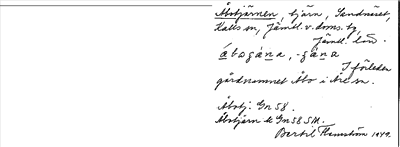 Åbotjärnen, tjärn, Sandnäset,
Kalls sn, Jämtl. v. doms. tg,
Jämtl. län.
I förleden
gårdsnamnet Åbo i Åre sn.
Åbotj. Gn 58.
Åbotjärn k Gn 58 SM.
Bertil Flemström 1949.